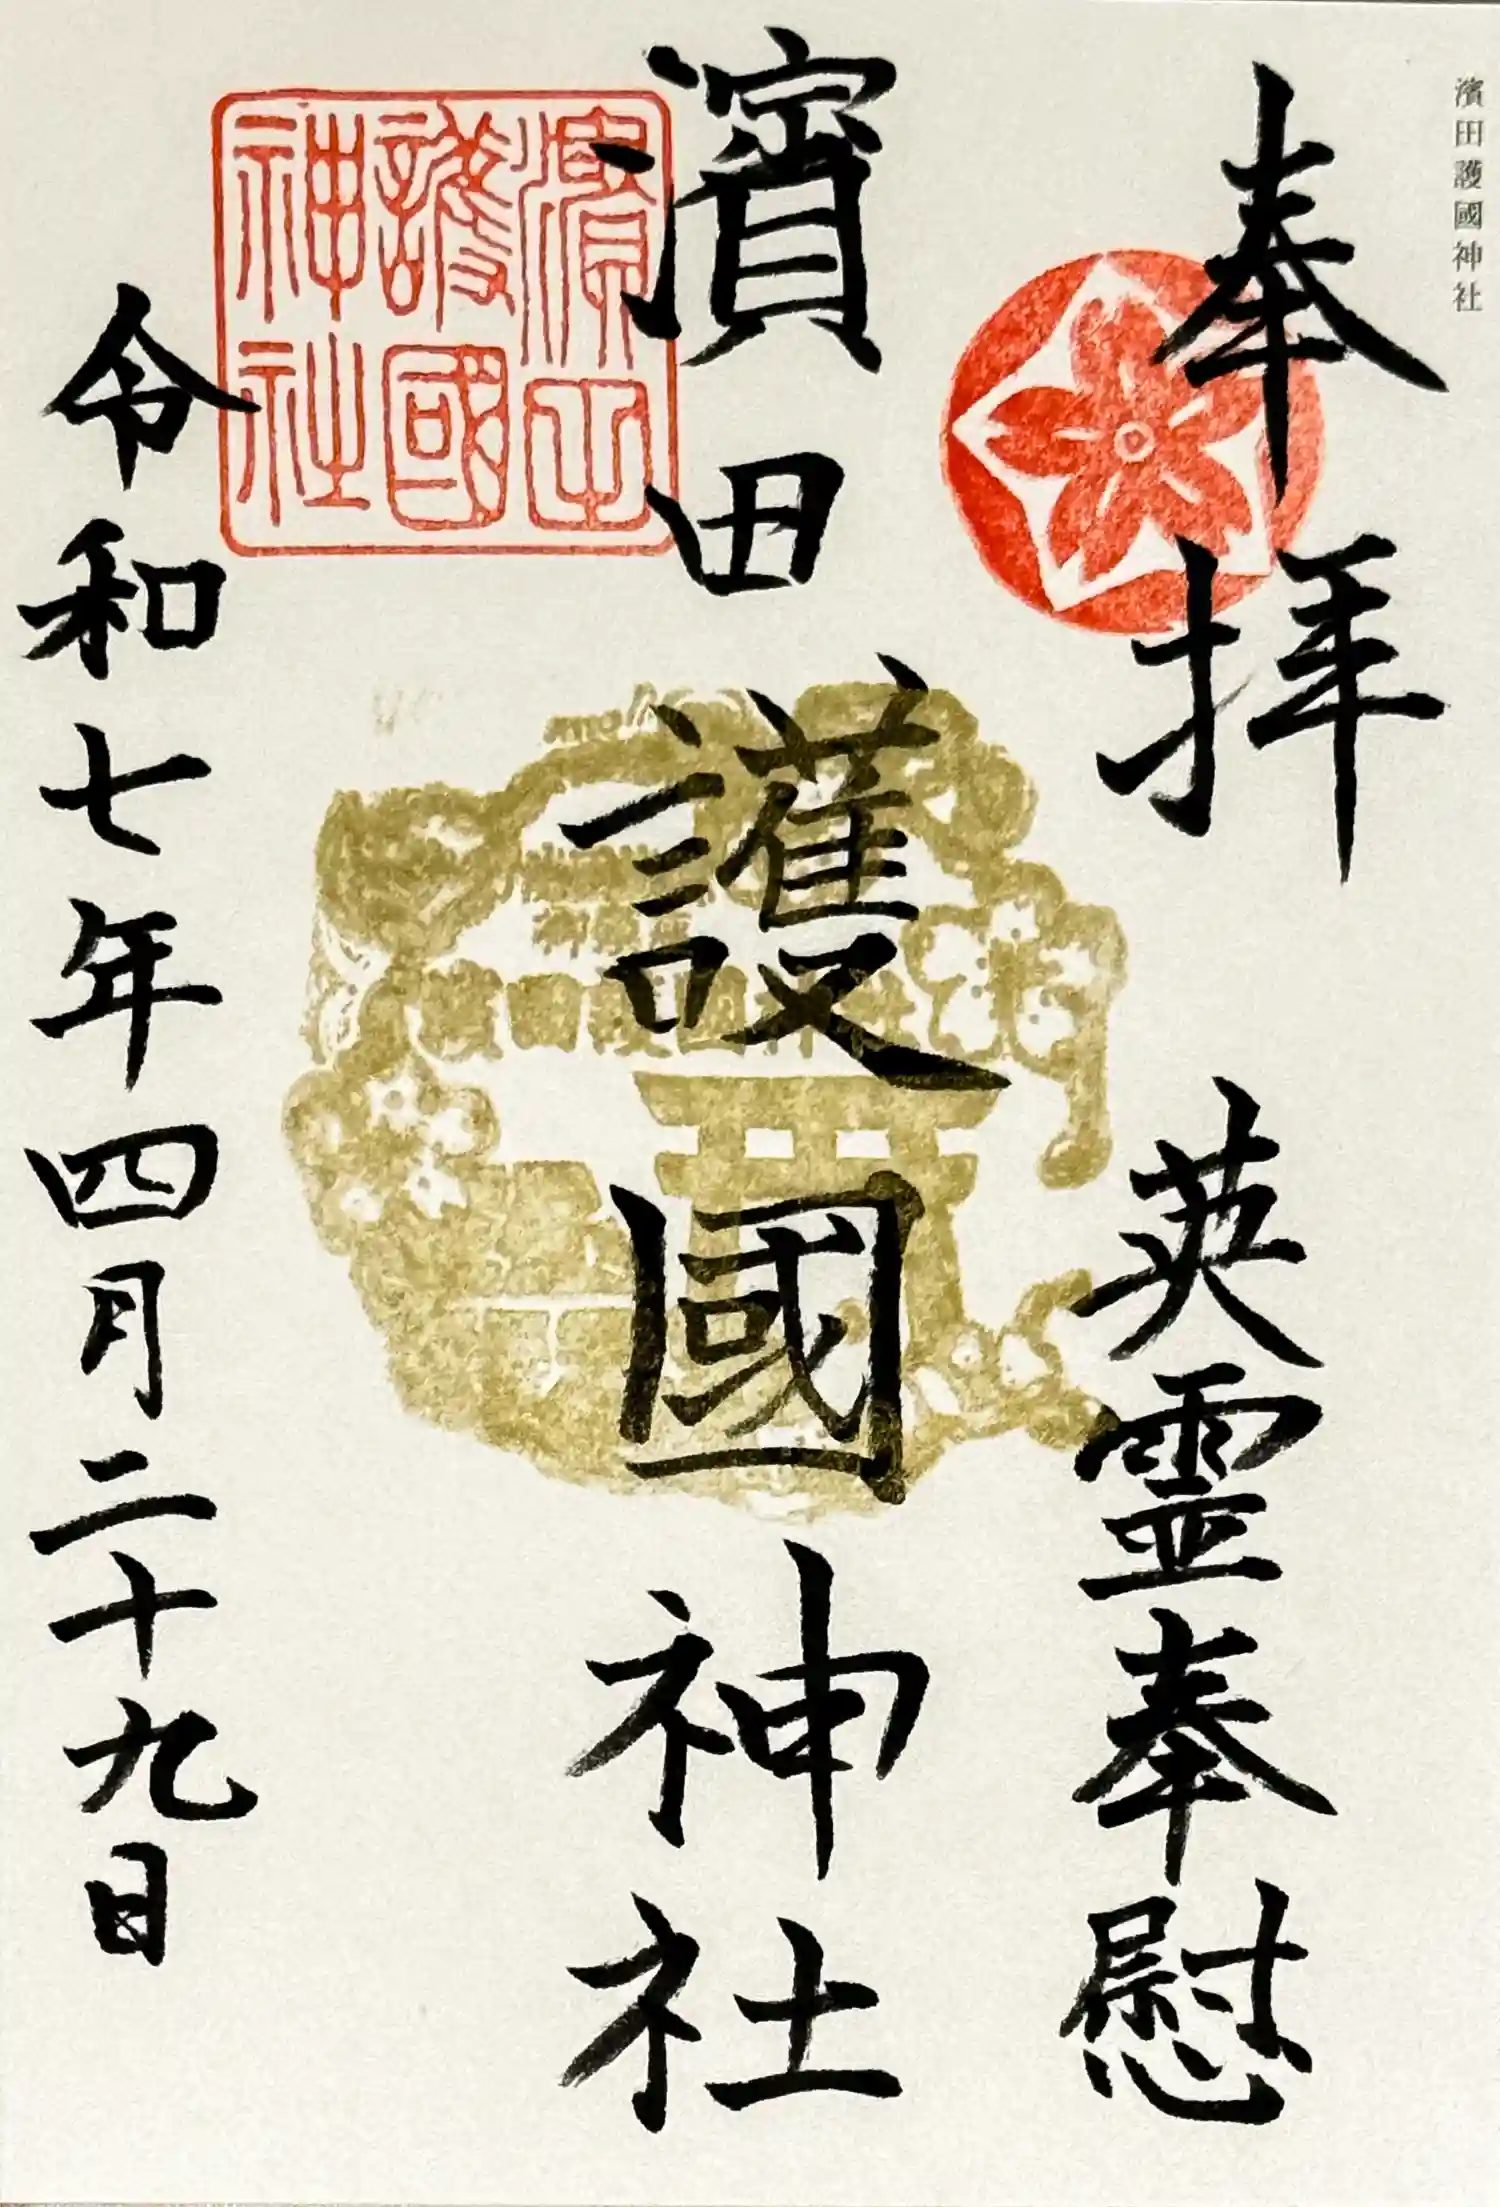 濱田護國神社
奉拝 英霊奉慰
濱田護國神社
濱田護國神社
濱田護國神社
令和七年四月二十九日